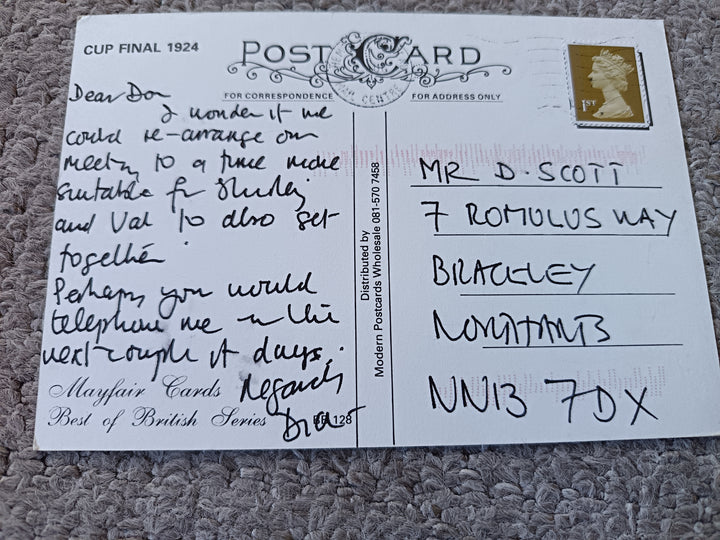 CUP FINAL 1924
POST CARD
FOR CORRESPONDENCE
FOR ADDRESS ONLY
1ST
Dear Don
I wonder if we
could re-arrange our
meeting to a time more
suitable for Shirley
and Val to also get
together.
Perhaps you would
telephone me in the
next couple of days.
Regards
Mayfair Cards
Best of British Series
BB 128
Distributed by
Modern Postcards Wholesale 081-570 7458
MR D. SCOTT
7 ROMULUS WAY
BRACKLEY
NORTHANTS
NN13 7DX